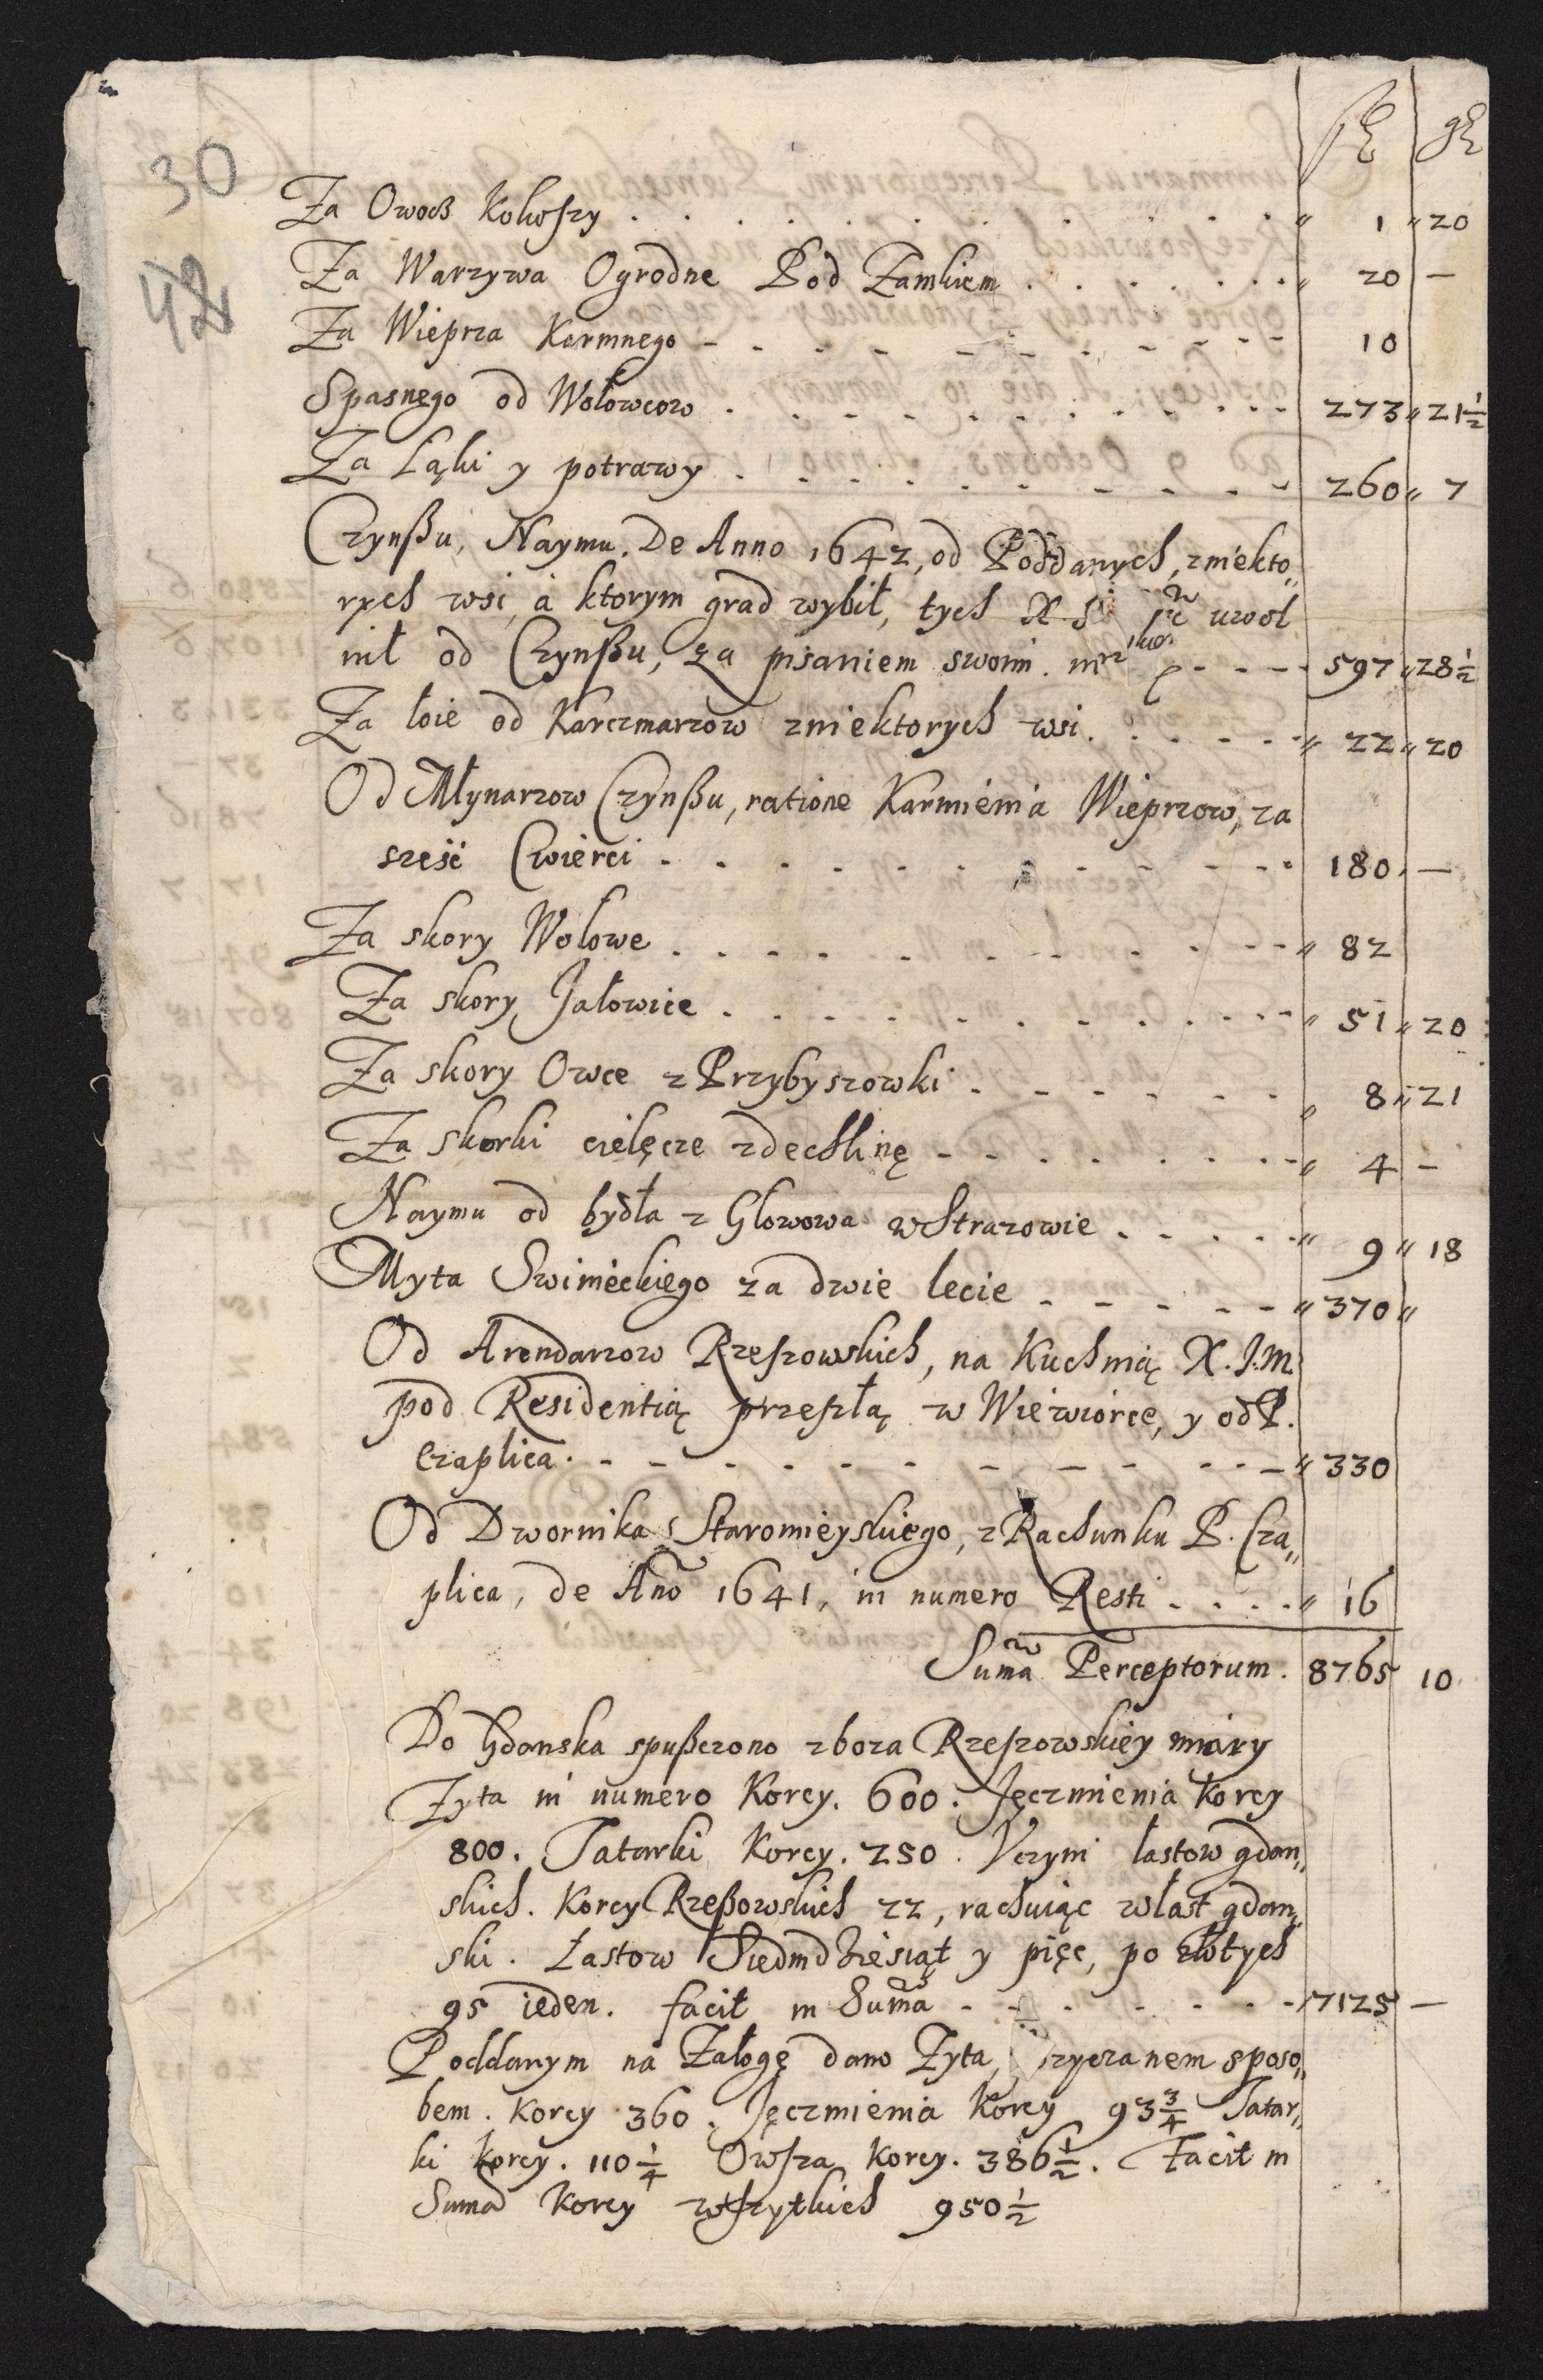 30
42
fl gr
Za Owocz Kokoszy . . . . . . . . . . " 1 " 20
Za Warzywa Ogrodne Pod Zamkiem . . . . . . . " 20 —
Za Wieprza Karmnego - - - - - - - - - - 10
Spasnego od Wołowcow . . . . . . . . . . 273 " 21½
Za Łąki y potrawy . . . . . . . . . . 260 " 7
Czynßu, Naymu. De Anno 1642, od Poddanych, zniekto„
rych wsi, a ktorym grad wybił, tych X. uwol
nił od Czynßu, za pisaniem swoim. - - - - 597 " 28½
Za łoie od Karczmarzow zniektorych wsi. . . . . . " 22 " 20
Od Młynarzow Czynßu, ratione Karmienia Wieprzow, za
sześć Cwierci . . . . . . . . . . 180 . —
Za skory Wołowe . . . . . . . . . . " 82
Za skory Jałowice . . . . . . . . . . " 51 " 20
Za skory Owce z Przybyszowki . . . . . . . " 8 " 21
Za skorki cielęcze zdechlinę - - - . . . . . " 4 —
Naymu od bydła z Głowowa w Strazowie . . . . . " 9 " 18
Myta Swiniéckiego za dwie lecie - - - - - " 370 "
Od Arendarzow Rzeszowskich, na Kuchnią X. J. M
pod Residentią przeszłą w Wiewiorce, y od P.
Czaplica. - - - - - - - - - - " 330
Od Dwornika Staromieyskiego, z Rachunku P. Cza„
plica, de Año 1641, in numero Resti . . . . " 16
Suma Perceptorum. 8765 10
Do Gdanska spußczono zboza Rzeszowskiey miary
Zyta in numero Korcy. 600. Jęczmienia Korcy
800. Tatarki Korcy. 250. Vczyni łastow gdan„
skich. Korcy Rzeßowskich 22, rachuiąc włast gdan„
ski. Łastow Siedmdziesiąt y pięc, po złotych
95 ieden. facit in Suma - - - - - - - 7125 —
Poddanym na Załogę dano Zyta, sposo„
bem. Korcy 360. Jęczmienia Korcy 93¾ Tatar„
ki korcy. 110¼ Owsza Korcy. 386½. Facit in
Suma Korcy wszytkich 950½